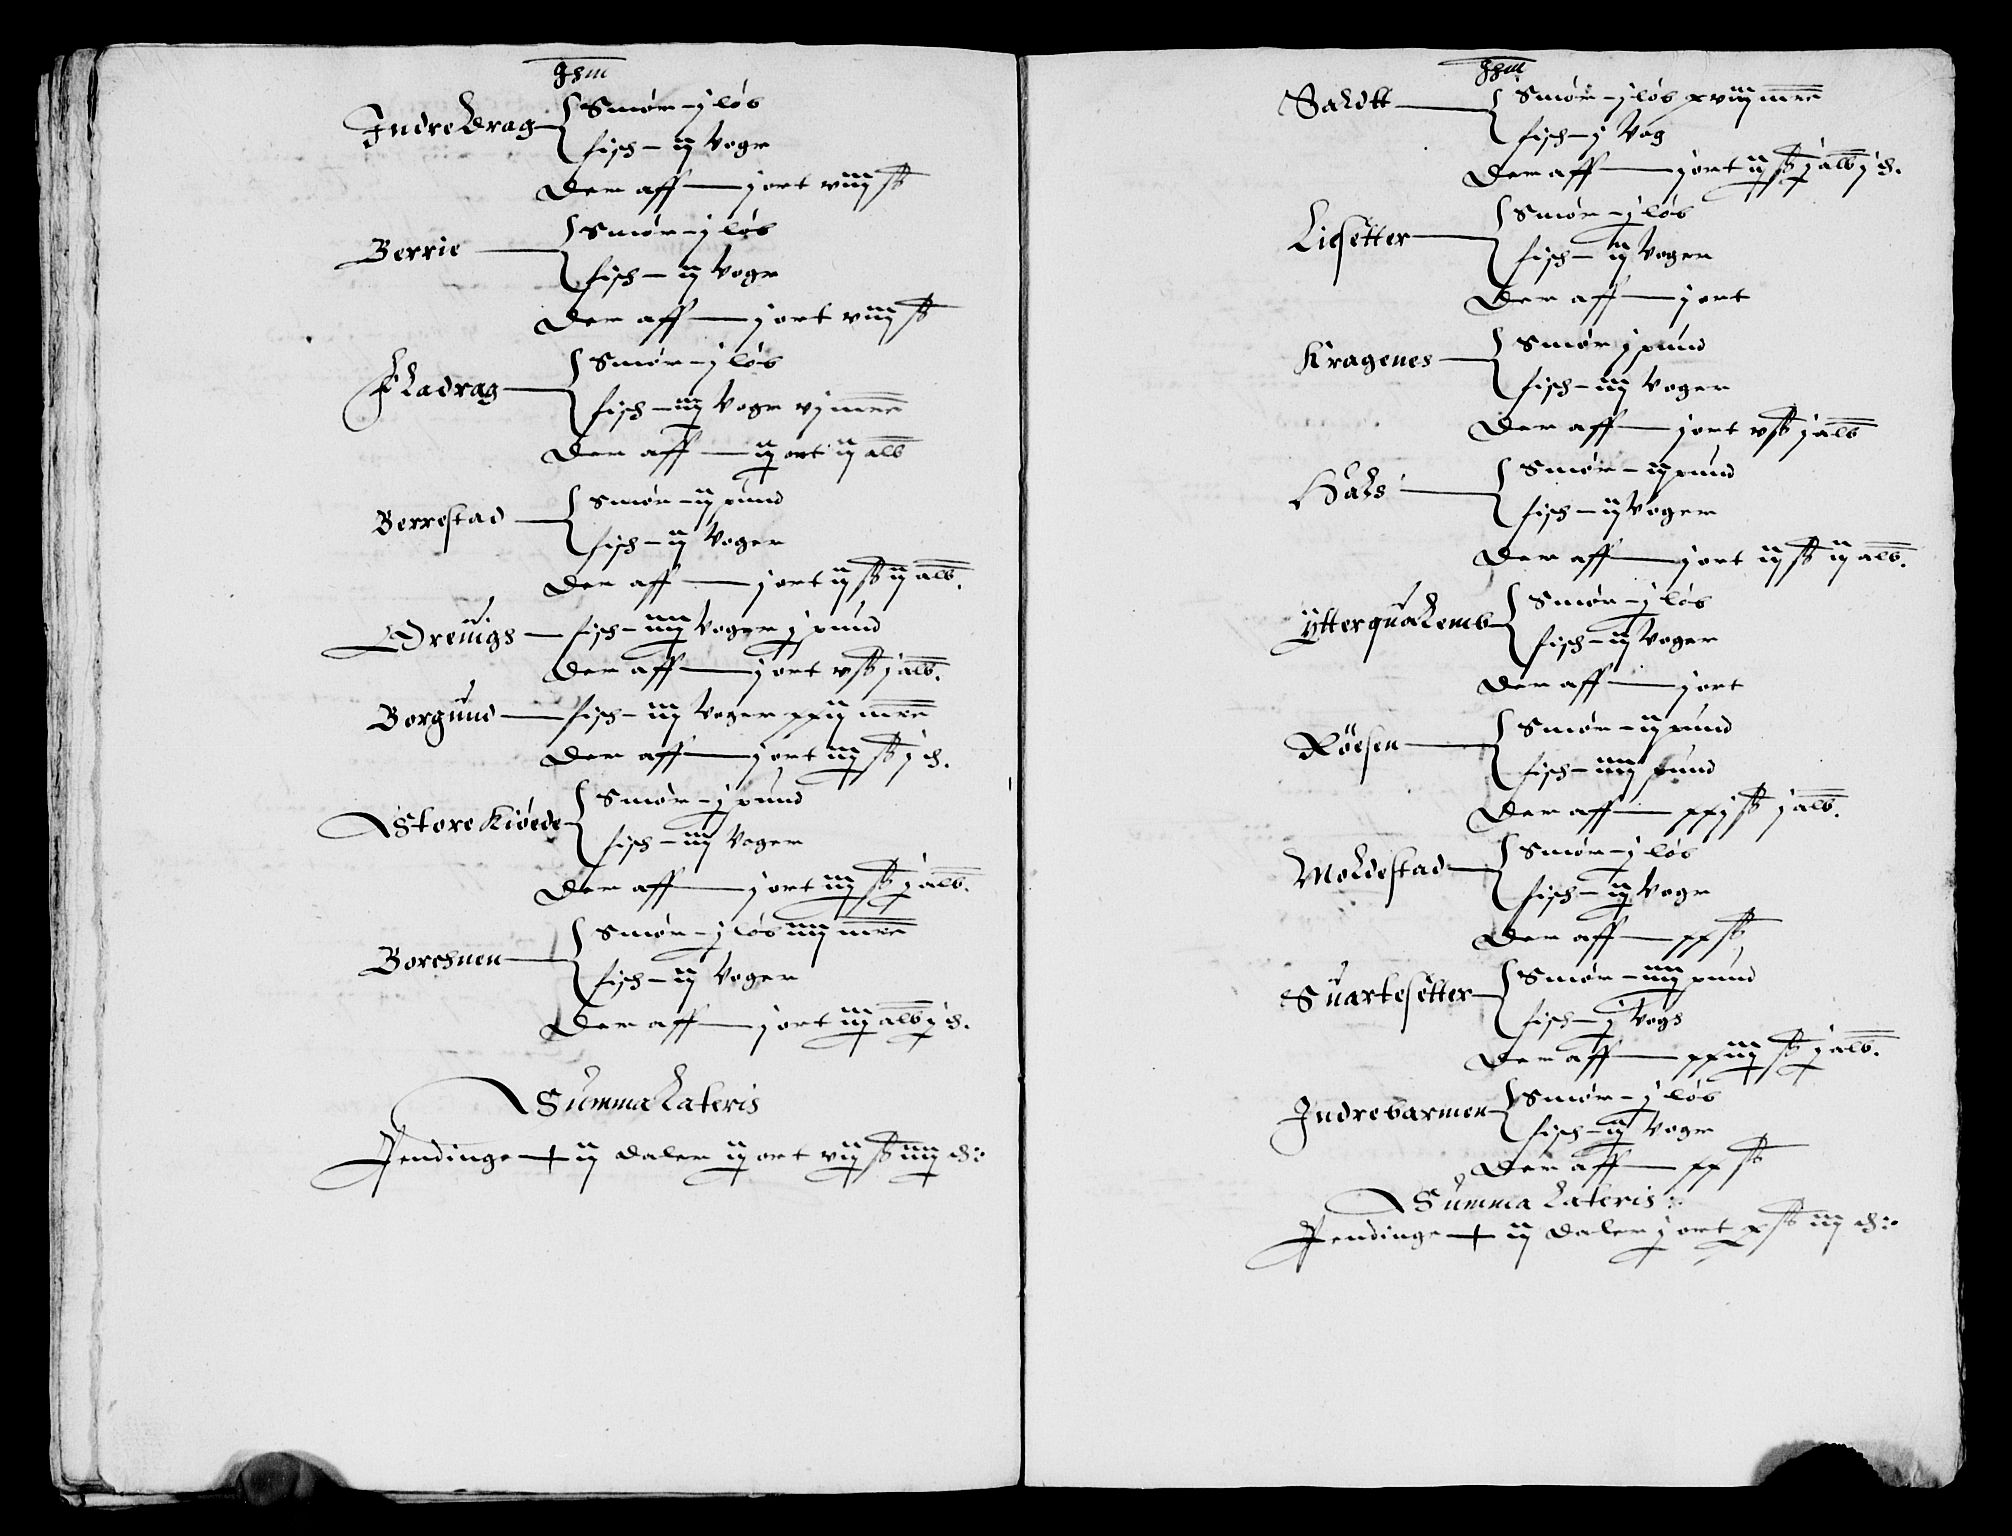 Jhm
Indre Drag Smør – j løb
fisch – ij Voge
Der aff — j ort viij sk
Berrie Smør – j løb
fisch – ij Voge
Der aff — j ort viij sk
Fladrag Smør – j løb
fisch – iij Voge vj mrc
Der aff — iij ort ij alb
Berrestad Smør – ij pund
fisch – ij Voger
Der aff — j ort ij sk ij alb.
Dreuigs fisch – iiij Voger j pund
Der aff — j ort v sk j alb.
Borgund fisch – iij Voger xxij mrc
Der aff — j ort iiij sk j ch.
Store Kiøede Smør – j pund
fisch – iij Voger
Der aff — j ort iij sk j alb.
Borchnen Smør – j løb iiij mrc
fisch – ij Voger
Der aff — j ort iij alb j ch.
Summa Lateris
Pendinge + ij daler iij ort vij sk iiij ch:
Jhm
Saldtt Smør – j løb xviij mrc
fisch – j Vog
Der aff — j ort ij sk j alb j ch.
Lidsetter Smør – j løb
fisch – ij Voger
Der aff — j ort
Kragenes Smør j pund
fisch – iij Voger
Der aff — j ort v sk j alb
Hals Smør – ij pund
fisch – ij Voger
Der aff — j ort ij sk ij alb.
Ytterqualemb Smør – j løb
fisch – ij Voger
Der aff — j ort
Røesen Smør – ij pund
fisch – iiij pund
Der aff — xxj sk j alb.
Moldestad Smør – j løb
fisch – ij Voge
Der aff — xx sk
Suartesetter Smør – iiij pund
fisch – j Vogh
Der aff — xxiij sk j alb.
Indrebarmen Smør – j løb
fisch – ij Voge
Der aff — xx sk
Summa Lateris:
Pendinge + ij daler j ort x sk iij ch: